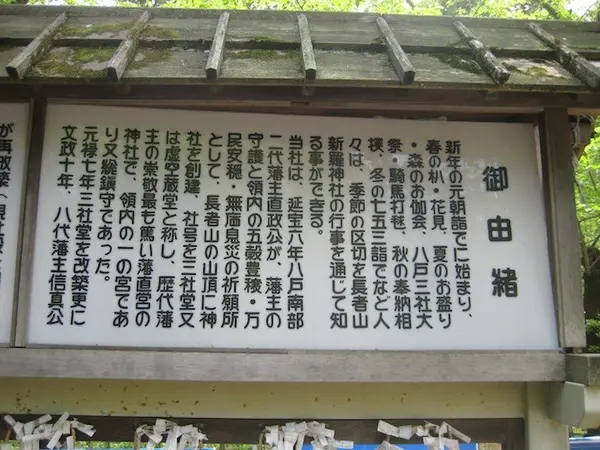 御由緒
新年の元朝詣でに始まり、
春の杁・花見、夏のお盛り
・森のお伽会、八戸三社大
祭・騎馬打毬、秋の奉納相
撲、冬の七五三詣でなど人
々は、季節の区切を長者山
新羅神社の行事を通じて知
る事ができる。
当社は、延宝六年八戸南部
二代藩主直政公が、藩主の
守護と領内の五穀豊穣・万
民安穏・無病息災の祈願所
として、長者山の山頂に神
社を創建、社号を三社堂又
は虚空蔵堂と称し、歴代藩
主の崇敬最も篤い藩直営の
神社で、領内の一の宮であ
り又総鎮守であった。
元禄七年三社堂を改築更に
文政十年、八代藩主信真公
が再改築（現社殿